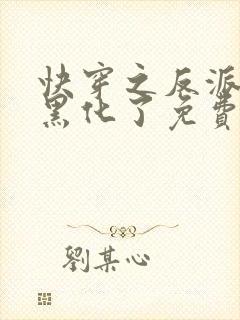 快穿之反派
黑化了免費
劉某心